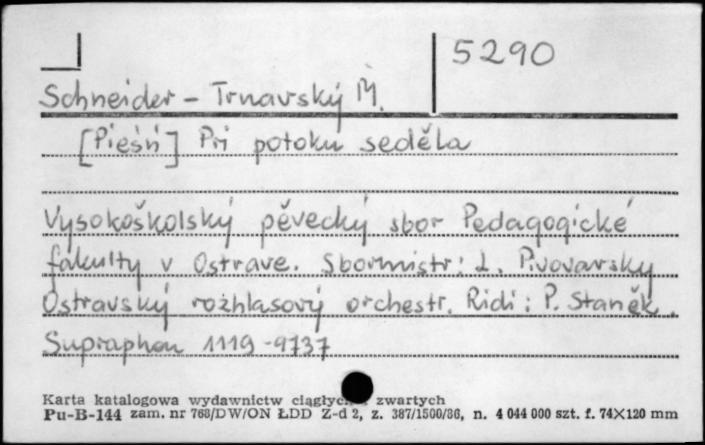 5290
Schneider - Trnavský M.
[Pieśń] Pri potoku seděla
Vysokoškolský pěvecký sbor Pedagogické
fakulty v Ostrave. Sbormistr: L. Pivovarský
Ostravský rozhlasový orchestr. Ridi: P. Staněk.
Supraphon 1119-9737
Karta katalogowa wydawnictw ciągłych zwartych
Pu-B-144 zam. nr 768/DW/ON ŁDD Z-d 2, z. 387/1500/86, n. 4 044 000 szt. f. 74X120 mm